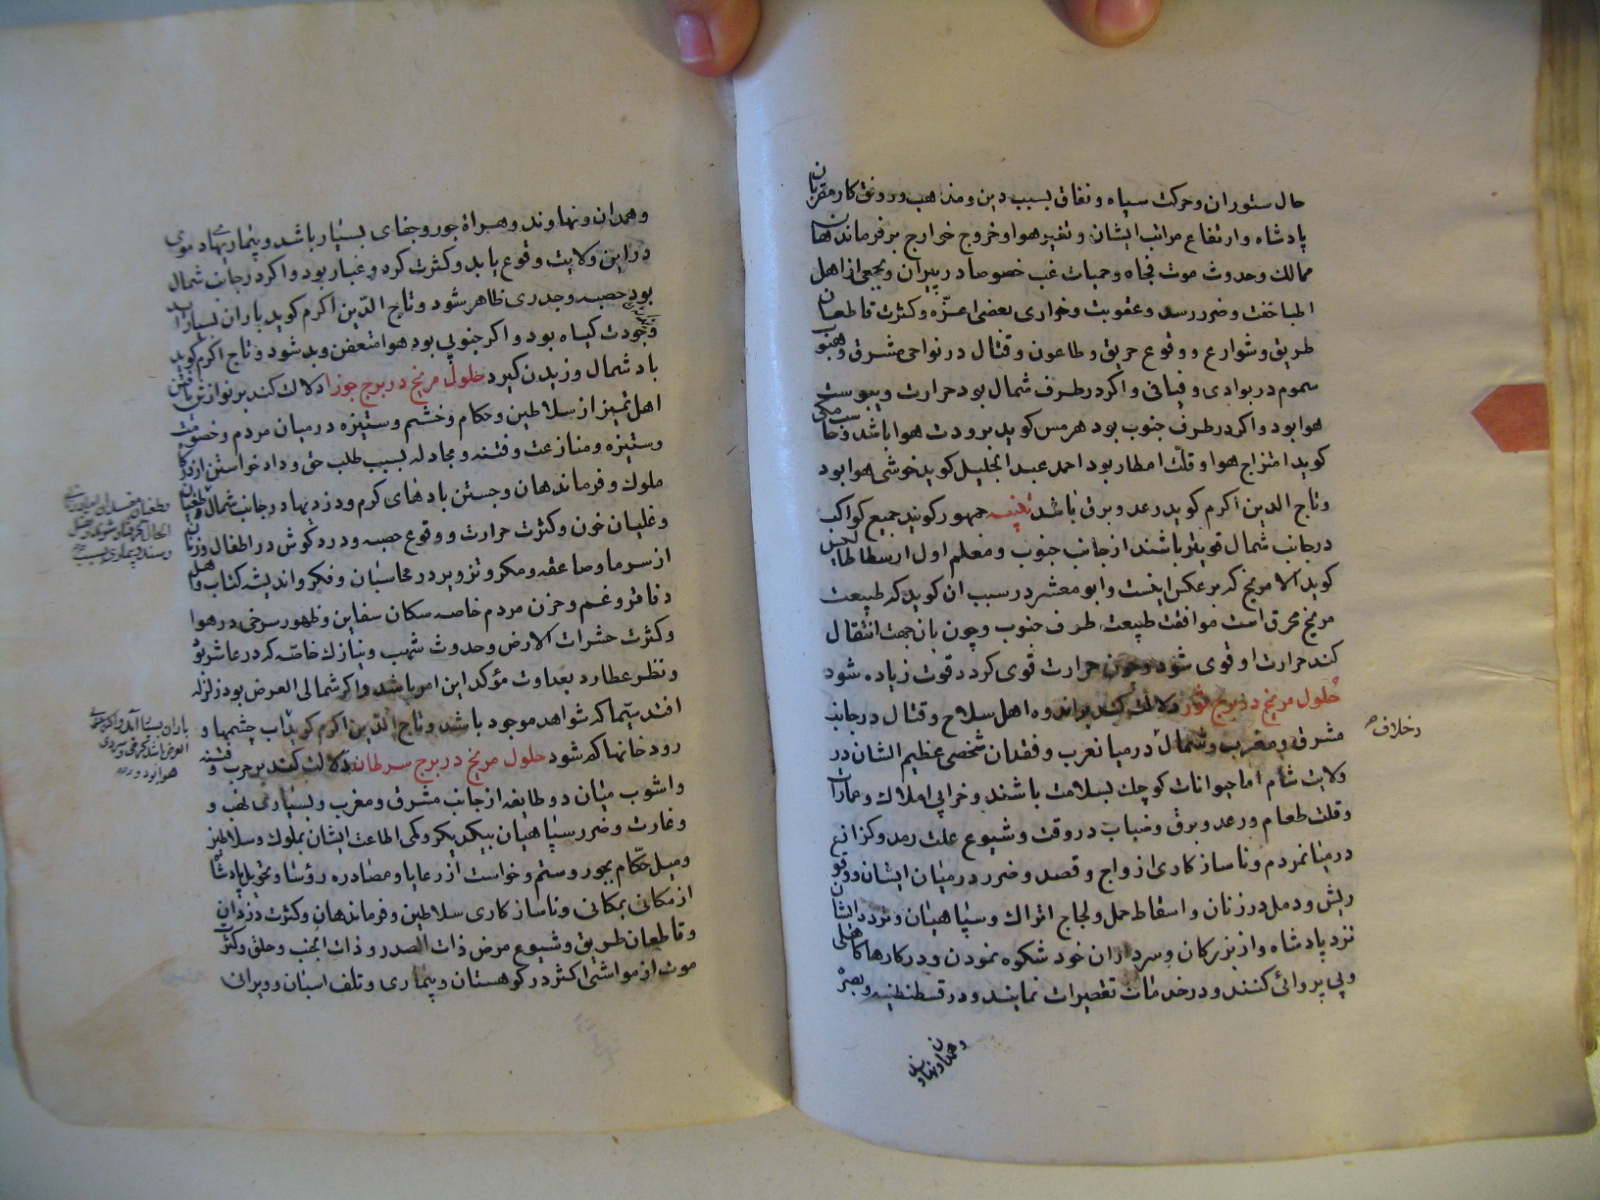 حال ستوران و حرکت سپاه و نفاق بسبب دین و مذاهب و رونق کار مقربان
پادشاه و ارتفاع مراتب ایشان و تغیر هوا و خروج خوارج بر فرماندهان
ممالک و حدوث موت فجاه و حمیات غب خصوصا در پیران و جمعی از اهل
اطبا خفت و ضرر رسد و عقوبت و خواری بعضی اعزّه و کثرت قاطعان
طریق و شوارع و وقوع حریق و طاعون و قتال در نواحی مشرق و جنوب
سموم در بوادی و فیافی و اکر در طرف شمال بود حرارت و یبوست
هوا بود و اکر در طرف جنوب بود هرمس کوید برودت هوا باشد و
کوید امتزاج هوا و قلت امطار بود احمد عبد الجلیل کوید خوشی هوا بود
و تاج الدین اکرم کوید رعد و برق باشد جمهور کویند جمیع کواکب
در جانب شمال قویتر باشند از جانب جنوب و معلم اول ارسطاطالیس
کوید الا مریخ که بر عکس اینست و ابو معشر در سبب ان کوید که طبیعت
مریخ محرق است موافقت طبیعت طرف جنوب و چون بان جهت انتقال
کند حرارت او قوی شود و چون حرارت قوی کردد قوت زیاده شود
حلول مریخ در برج ثور دلالت کند بر اندوه اهل سلاح و قتال در جانب
مشرق و مغرب و شمال در میان عرب و فقدان شخصی عظیم الشان در
ولایت شام اما حیوانات کوچک بسلامت باشند و خرابی املاک و عمارات
و قلت طعام و رعد و برق و ضباب در وقت و شیوع علت رمد و کزانع
در میان مردم و ناسازکاری ازواج و قصد و ضرر در میان ایشان و وقوع
ریش و دمل در زنان و اسقاط حمل و لجاج اتراک و سپاهیان و تردد ایشان
نزد پادشاه و از بزرکان و سرداران خود شکوه نمودن و در کارها کاهلی
و بی پروائی کنند و در خدمات تقصیرات نمایند و در قسطنطنیه و بصره
و همدان و نهاوند
و خلاف
و همدان و نهاوند و هراة جور و جفای بسیار باشد و بیماریهاء دموی
در این ولایت وقوع یابد و کثرت کرد و غبار بود و اکر در جانب شمال
بود حصبه و جدری ظاهر شود و تاج الدّین اکرم کوید باران بسیار آید
و جودت کیاه بود و اکر جنوبی بود هوا متعفن و بد شود و تاج اکرم کوید
باد شمال وزیدن کیرد حلول مریخ در برج جوزا دلالت کند بر نوازش یافتن
اهل تمیز از سلاطین و حکام و خشم و ستیزه در میان مردم و خصومت
و ستیزه و منازعت و فتنه و مجادله بسبب طلب حق و داد خواستن از درکاه
ملوک و فرماندهان و جستن بادهای کرم و دزدیها در جانب شمال و طغیان
و غلیان خون و کثرت حرارت و وقوع حصبه و درد کوش در اطفال و زنان
از سرما و صاعقه و مکر و تزویر در محاسبان و فکر و اندیشه کتاب و اهل
دفاتر و غم و حزن مردم خاصه سکان سفاین و ظهور سرخی در هوا
و کثرت حشرات الارض و حدوث شهب و نیازک خاصّه که در عاشر بود
و نظر عطارد بعداوت مؤکد این امر باشد و اکر شمالی العرض بود زلزله
افتد سیّما که شواهد موجود باشد و تاج الدین اکرم کوید آب چشمها و
رودخانها کم شود حلول مریخ در برج سرطان دلالت کند بر حرب و فتنه
و اشوب میان دو طایفه از جانب مشرق و مغرب و بسیاری نهب و
و غارت و ضرر سپاهیان بیکدیکر و کمی اطاعت ایشان بملوک و سلاطین
و میل حکّام بجور و ستم و خواست از رعایا و مصادره رؤسا و تحویل پادشاه
از مکانی بمکانی و ناسازکاری سلاطین و فرماندهان و کثرت دزدان
و قاطعان طریق و شیوع مرض ذات الصدر و ذات الجنب و حلق و کثرت
موت از مواشی اکثر در کوهستان و بیماری و تلف اسبان و ویرانی